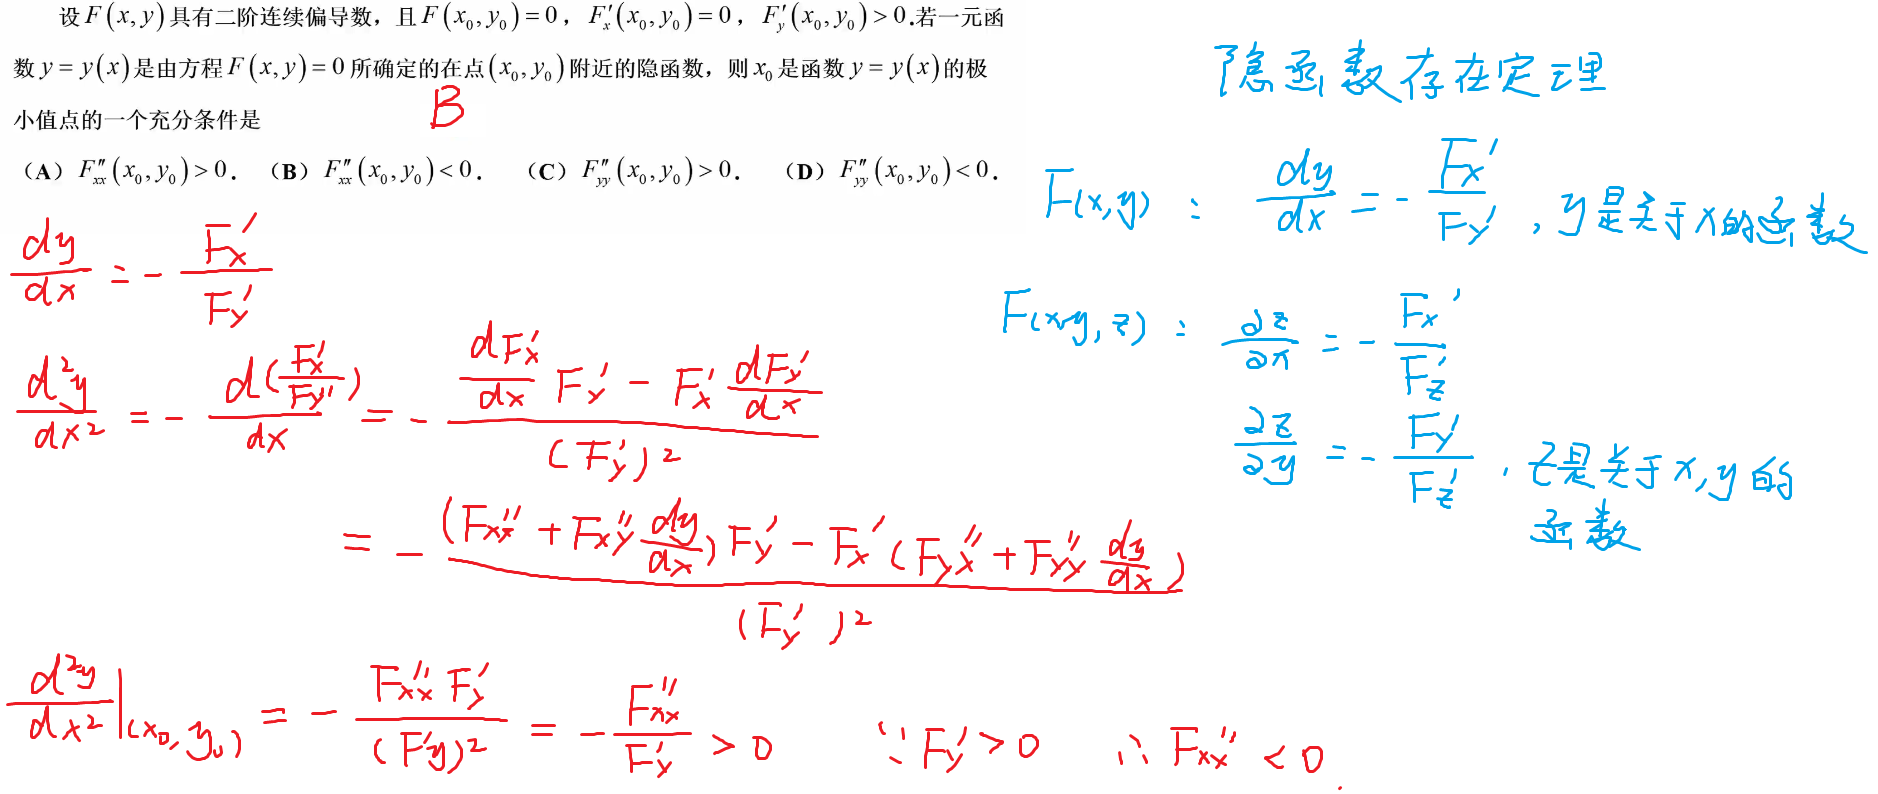 设F(x,y)具有二阶连续偏导数，且F(x₀,y₀)=0，F′ₓ(x₀,y₀)=0，F′_y(x₀,y₀)>0.若一元函
数y=y(x)是由方程F(x,y)=0所确定的在点(x₀,y₀)附近的隐函数，则x₀是函数y=y(x)的极
小值点的一个充分条件是
B
（A）F″ₓₓ(x₀,y₀)>0． （B）F″ₓₓ(x₀,y₀)<0． （C）F″_yy(x₀,y₀)>0． （D）F″_yy(x₀,y₀)<0．
dy/dx = - Fₓ′/F_y′
d²y/dx² = - d(Fₓ′/F_y′)/dx = - (dFₓ′/dx F_y′ - Fₓ′ dF_y′/dx)/(F_y′)²
= - ((Fₓₓ″ + F_xy″ dy/dx) F_y′ - Fₓ′ (F_yx″ + F_yy″ dy/dx))/(F_y′)²
d²y/dx²|(x₀,y₀) = - Fₓₓ″ F_y′/(F′_y)² = - Fₓₓ″/F_y′ > 0 ∵ F_y′ > 0 ∴ Fₓₓ″ < 0.
隐函数存在定理
F(x,y) : dy/dx = - Fₓ′/F_y′ , y是关于x的函数
F(x,y,z) : ∂z/∂x = - Fₓ′/F_z′
∂z/∂y = - F_y′/F_z′ , z是关于x,y的
函数